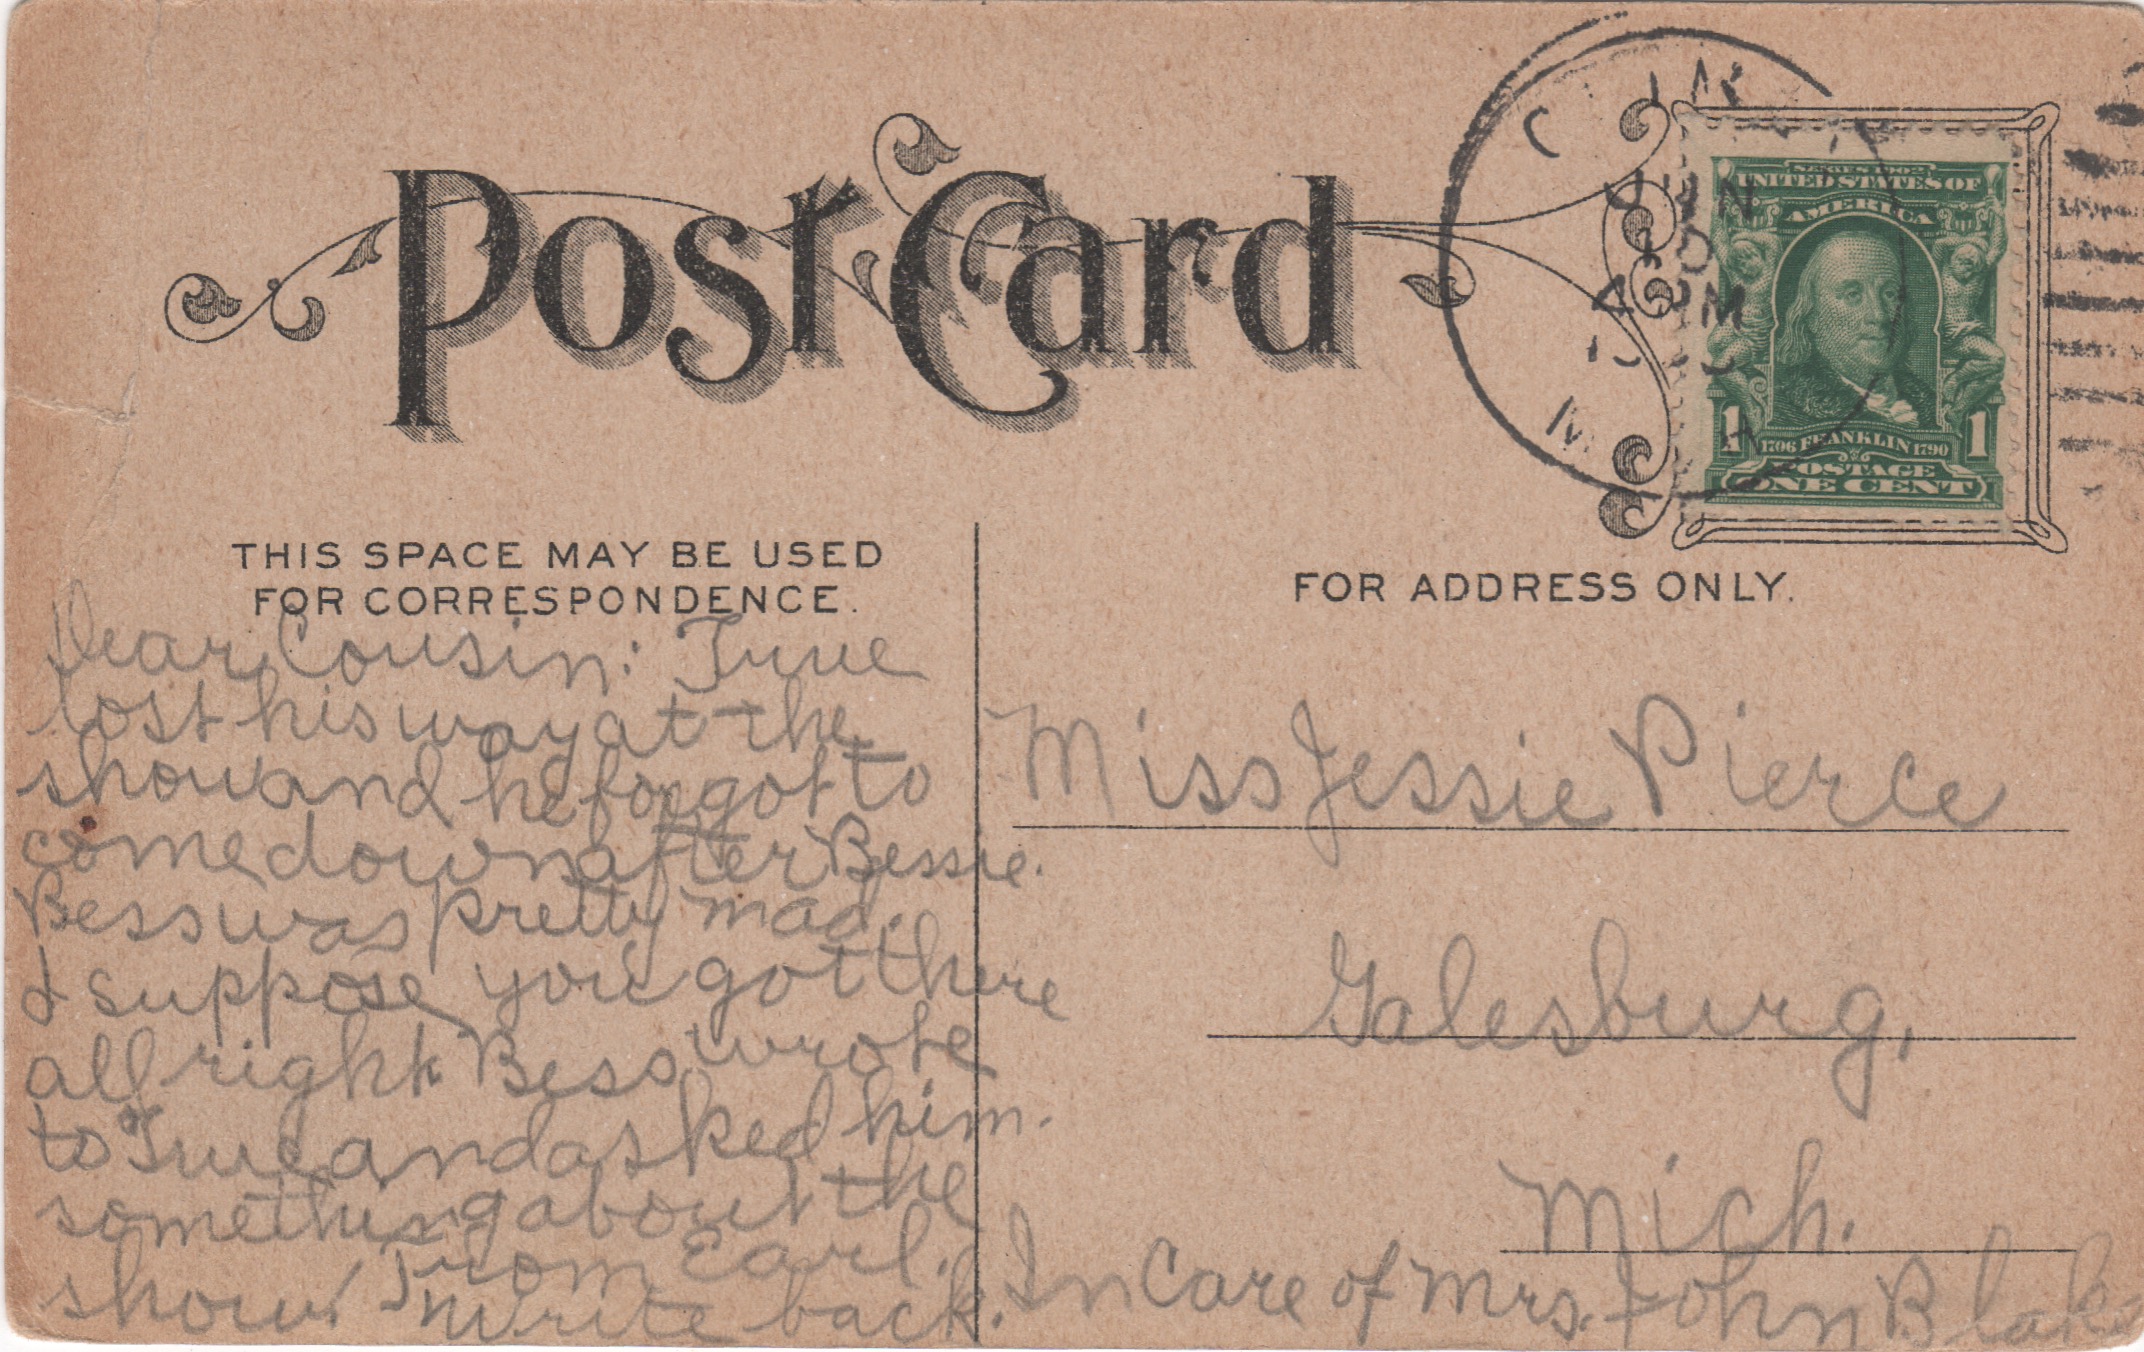 Post Card
THIS SPACE MAY BE USED
FOR CORRESPONDENCE.
Dear Cousin: True
lost his way at the
show and he forgot to
come down after Bessie.
Bess was pretty mad.
I suppose you got there
all right. Bess wrote
to True and asked him.
something about the
show! From Earl.
Write back.
JUN
10
PM
SERIES 1902
UNITED STATES OF
AMERICA
1 1706 FRANKLIN 1790 1
POSTAGE
ONE CENT
FOR ADDRESS ONLY.
Miss Jessie Pierce
Galesburg,
Mich.
In Care of Mrs. John Blake